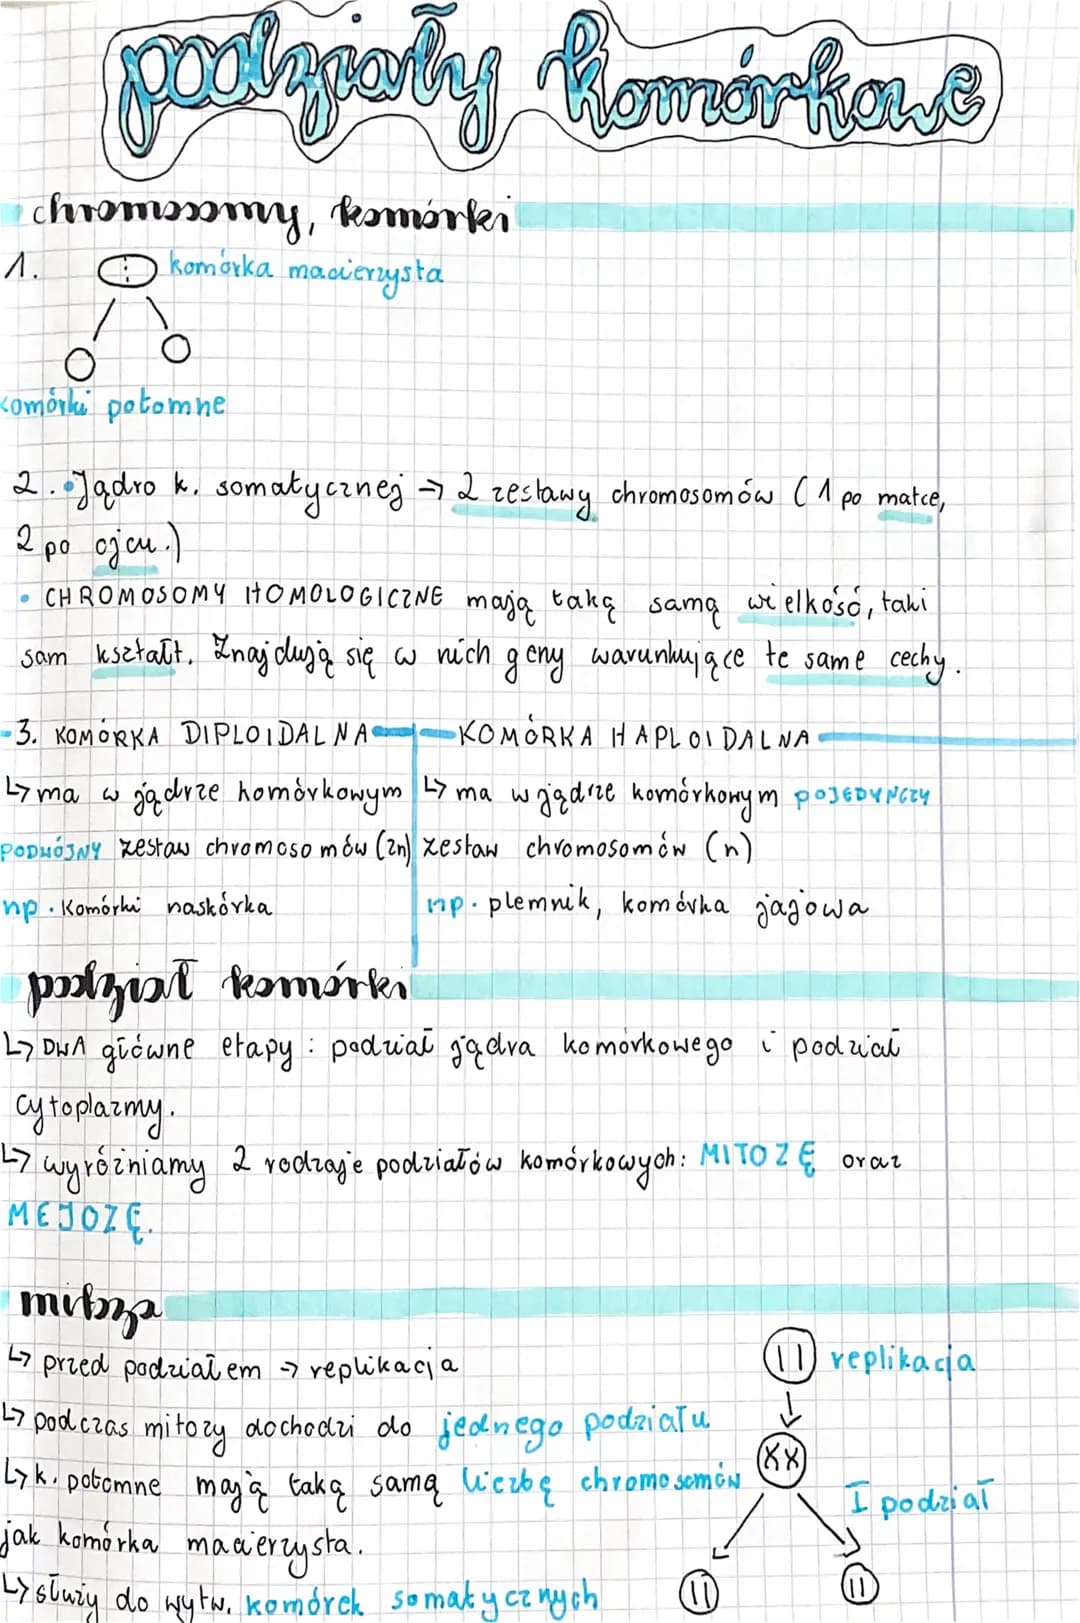 podziały komórkowe
chromosomy, komórki
1. komórka macierzysta
komórki potomne
2. • Jądro k. somatycznej → 2 zestawy chromosomów (1 po matce,
2 po ojcu.)
• CHROMOSOMY HOMOLOGICZNE mają taką samą wielkość, taki
sam kształt. Znajdują się w nich geny warunkujące te same cechy.
3. KOMÓRKA DIPLOIDALNA
↳ ma w jądrze komórkowym
PODWÓJNY zestaw chromosomów (2n)
np. Komórki naskórka
KOMÓRKA HAPLOIDALNA
↳ ma w jądrze komórkowym POJEDYNCZY
zestaw chromosomów (n)
np. plemnik, komórka jajowa
podział komórki
↳ DWA główne etapy: podział jądra komórkowego i podział
cytoplazmy.
↳ wyróżniamy 2 rodzaje podziałów komórkowych: MITOZĘ oraz
MEJOZĘ.
mitoza
↳ przed podziałem → replikacja
↳ podczas mitozy dochodzi do jednego podziału
↳ k. potomne mają taką samą liczbę chromosomów
jak komórka macierzysta.
↳ służy do wytw. komórek somatycznych
replikacja
I podział